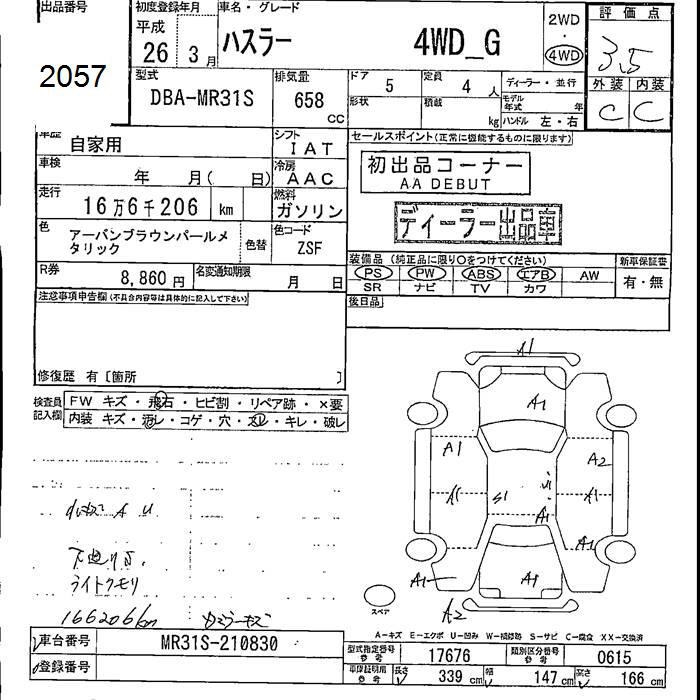 出品番号
2057
初度登録年月
平成
26 3月
車名・グレード
ハスラー 4WD_G
2WD
・
4WD
評価点
3.5
外装 内装
C C
型式
DBA-MR31S
排気量
658
CC
ドア 5
定員 4 人
ディーラー・並行
形状
積載 kg
モデル年式 年
ハンドル 左・右
車歴 自家用
シフト
IAT
車検 年 月( 日)
冷房
AAC
走行
16万6千206 km
燃料
ガソリン
色
アーバンブラウンパールメ
タリック
色替
色コード
ZSF
R券 8,860 円
名変通知期限 月 日
セールスポイント(正常に機能するものに限ります)
初出品コーナー
AA DEBUT
ディーラー出品車
装備品(純正品に限り○をつけてください)
新車保証書
PS PW ABS エアB AW
SR ナビ TV カワ
有・無
後日品
注意事項申告欄(不具合内容等は具体的に記入して下さい)
修復歴 有[箇所 ]
検査員
記入欄
FW キズ・飛石・ヒビ割・リペア跡・×要
内装 キズ・汚レ・コゲ・穴・スレ・キレ・破レ
A U
下廻りS
ライトクモリ
166206km
A1
A1
A1
A2
A1
S1
A1
A1
A1
A1
A1
A2
スペア
A-キズ E-エクボ U-凹み W-補修跡 S-サビ C-腐食 XX-交換済
車台番号 MR31S-210830
登録番号
型式指定番号
参考
17676
類別区分番号
参考
0615
車庫証明用
参考
長さ 339 cm
幅 147 cm
高さ 166 cm